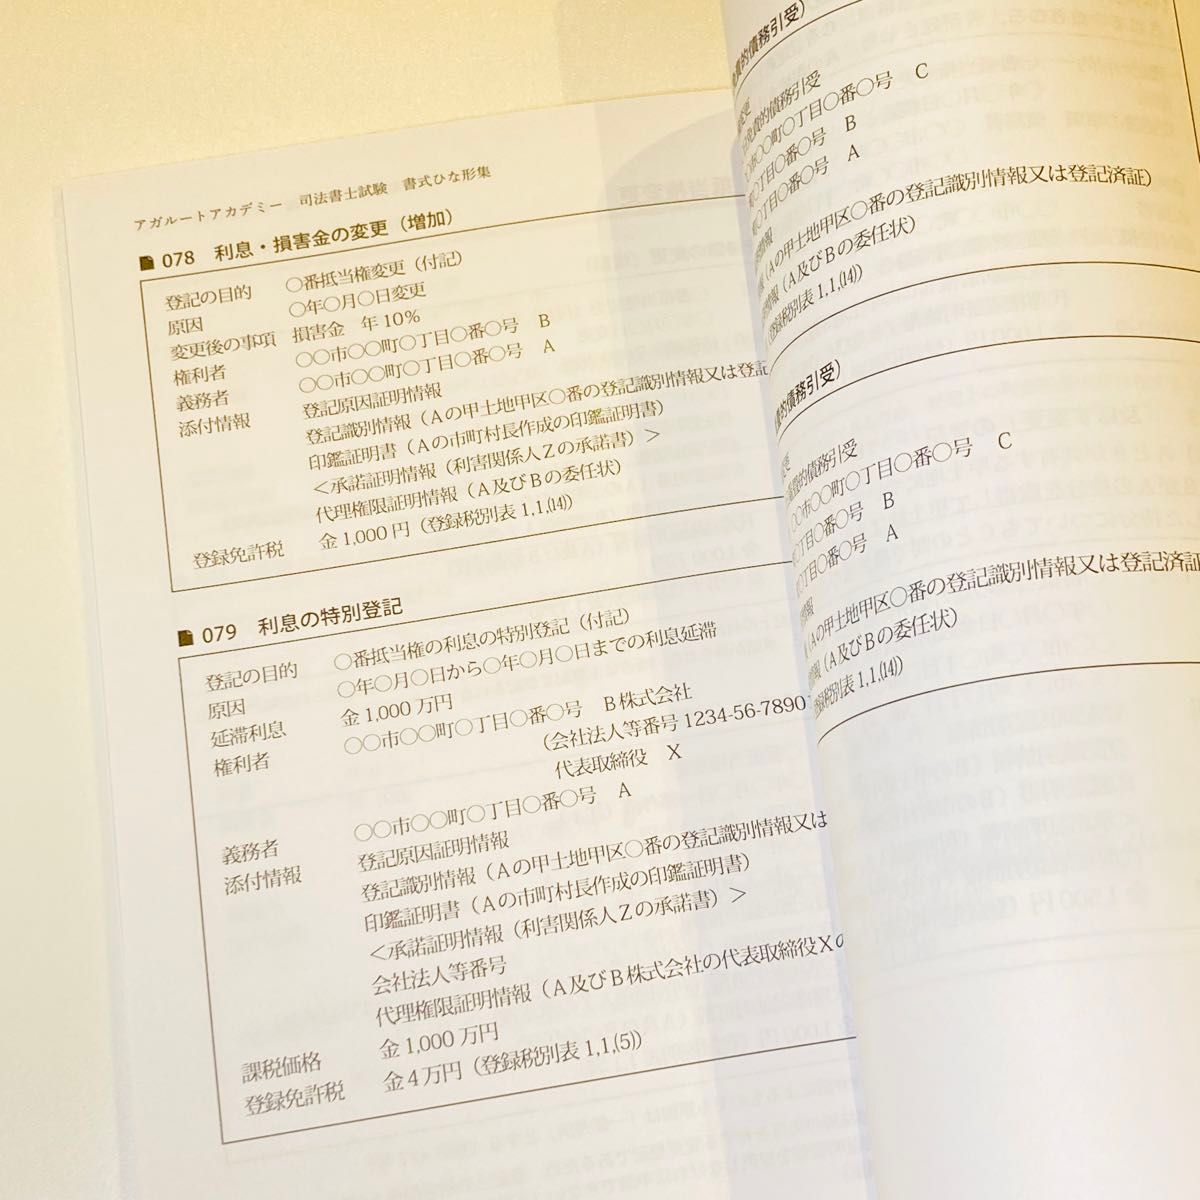 アガルートアカデミー 司法書士試験 書式ひな形集
078 利息・損害金の変更（増加）
登記の目的 〇番抵当権変更（付記）
原因 〇年〇月〇日変更
変更後の事項 損害金 年10%
権利者 〇〇市〇〇町〇丁目〇番〇号 B
義務者 〇〇市〇〇町〇丁目〇番〇号 A
添付情報 登記原因証明情報
登記識別情報（Aの甲土地甲区〇番の登記識別情報又は登記
印鑑証明書（Aの市町村長作成の印鑑証明書）
＜承諾証明情報（利害関係人Zの承諾書）＞
代理権限証明情報（A及びBの委任状）
登録免許税 金1,000円（登録税別表1,1,(14)）
079 利息の特別登記
登記の目的 〇番抵当権の利息の特別登記（付記）
原因 〇年〇月〇日から〇年〇月〇日までの利息延滞
延滞利息 金1,000万円
権利者 〇〇市〇〇町〇丁目〇番〇号 B株式会社
（会社法人等番号1234-56-7890
代表取締役 X
義務者 〇〇市〇〇町〇丁目〇番〇号 A
添付情報 登記原因証明情報
登記識別情報（Aの甲土地甲区〇番の登記識別情報又は
印鑑証明書（Aの市町村長作成の印鑑証明書）
＜承諾証明情報（利害関係人Zの承諾書）＞
会社法人等番号
代理権限証明情報（A及びB株式会社の代表取締役Xの
課税価格 金1,000万円
登録免許税 金4万円（登録税別表1,1,(5)）
的債務引受）
変更
免責的債務引受
町〇丁目〇番〇号 C
丁目〇番〇号 B
丁目〇番〇号 A
情報
（Aの甲土地甲区〇番の登記識別情報又は登記済証）
情報（A及びBの委任状）
（登録税別表1,1,(14)）
的債務引受）
変更
的債務引受
〇市〇〇町〇丁目〇番〇号 C
丁目〇番〇号 B
丁目〇番〇号 A
情報
（Aの甲土地甲区〇番の登記識別情報又は登記済証
情報（A及びBの委任状）
登録税別表1,1,(14)）